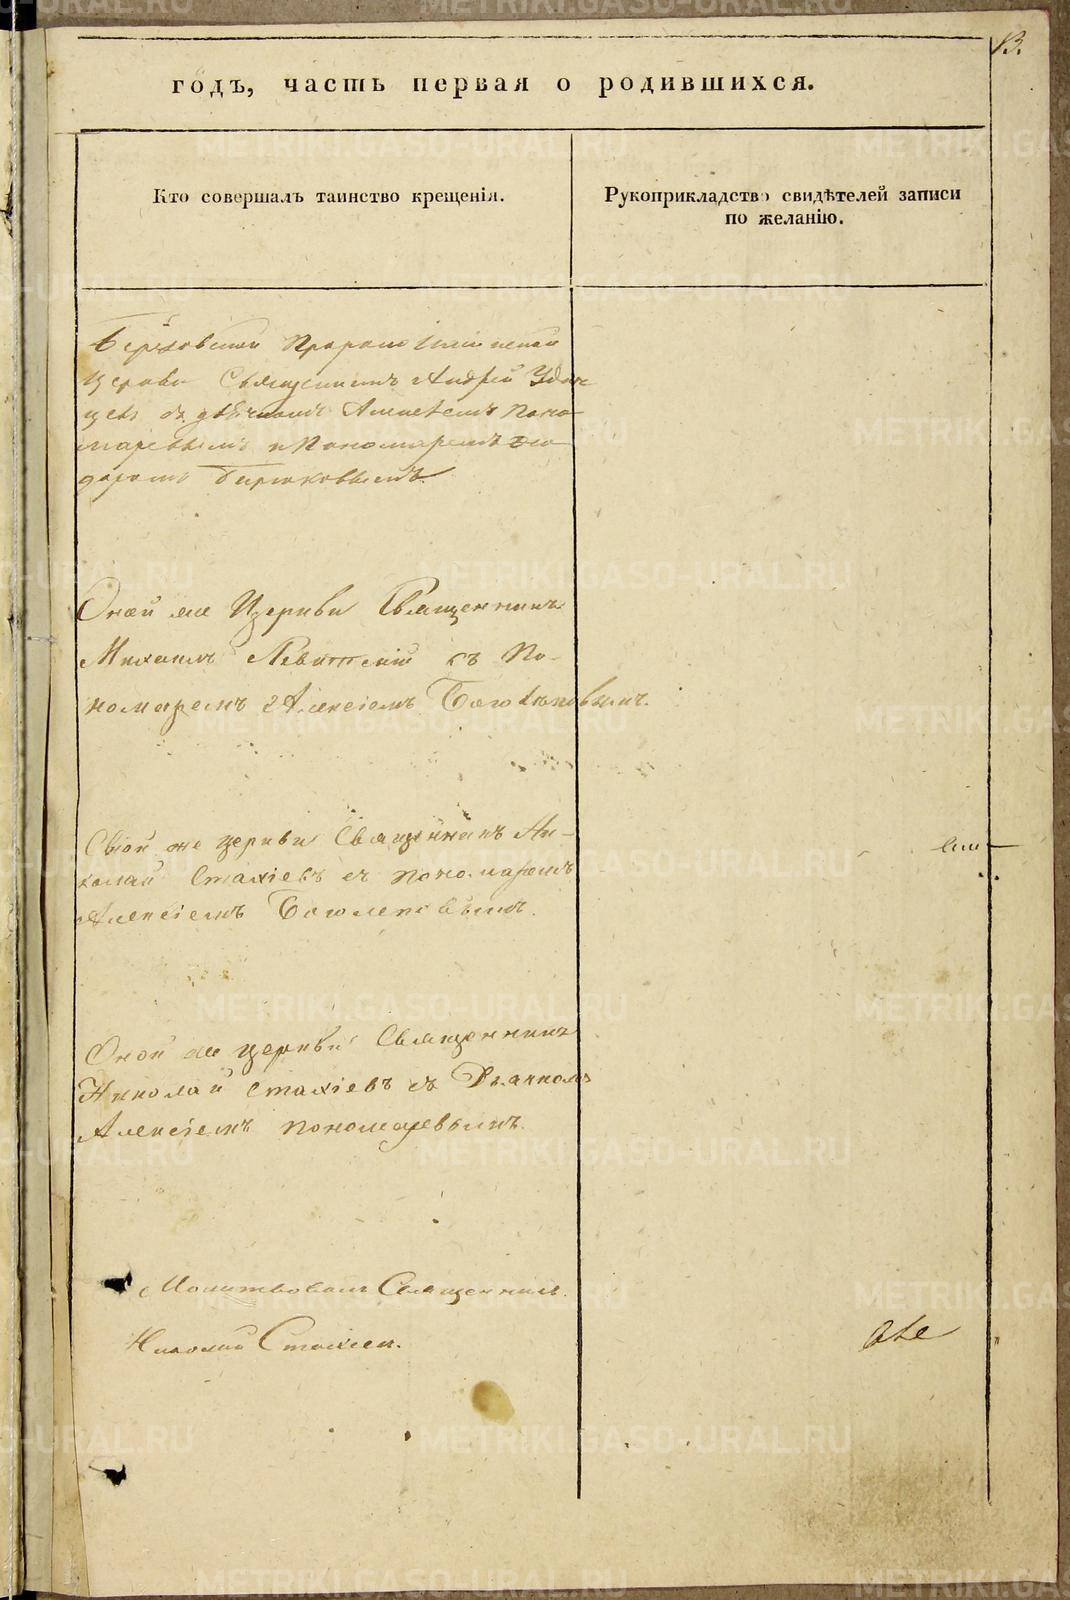 13.
годъ, часть первая о родившихся.
Кто совершалъ таинство крещенія.
Рукоприкладство свидѣтелей записи
по желанію.
Церкви Священникъ Андрей
Алексѣемъ Поно-
маревымъ и Пономаремъ Ѳео-
доромъ Бирюковымъ.
Оной же Церкви Священникъ
Михаилъ Левитскій съ По-
номаремъ Алексіемъ Боголѣповымъ.
Сѵой же церкви Священникъ Ни-
колай Стахіевъ съ пономаремъ
Алексіемъ Боголеповымъ.
Оной же церкви Священникъ
Николай Стахіевъ съ Дьячкомъ
Алексіемъ Пономаревымъ.
Молитвовалъ Священникъ
Николай Стахіев.
METRIKI.GASO-URAL.RU